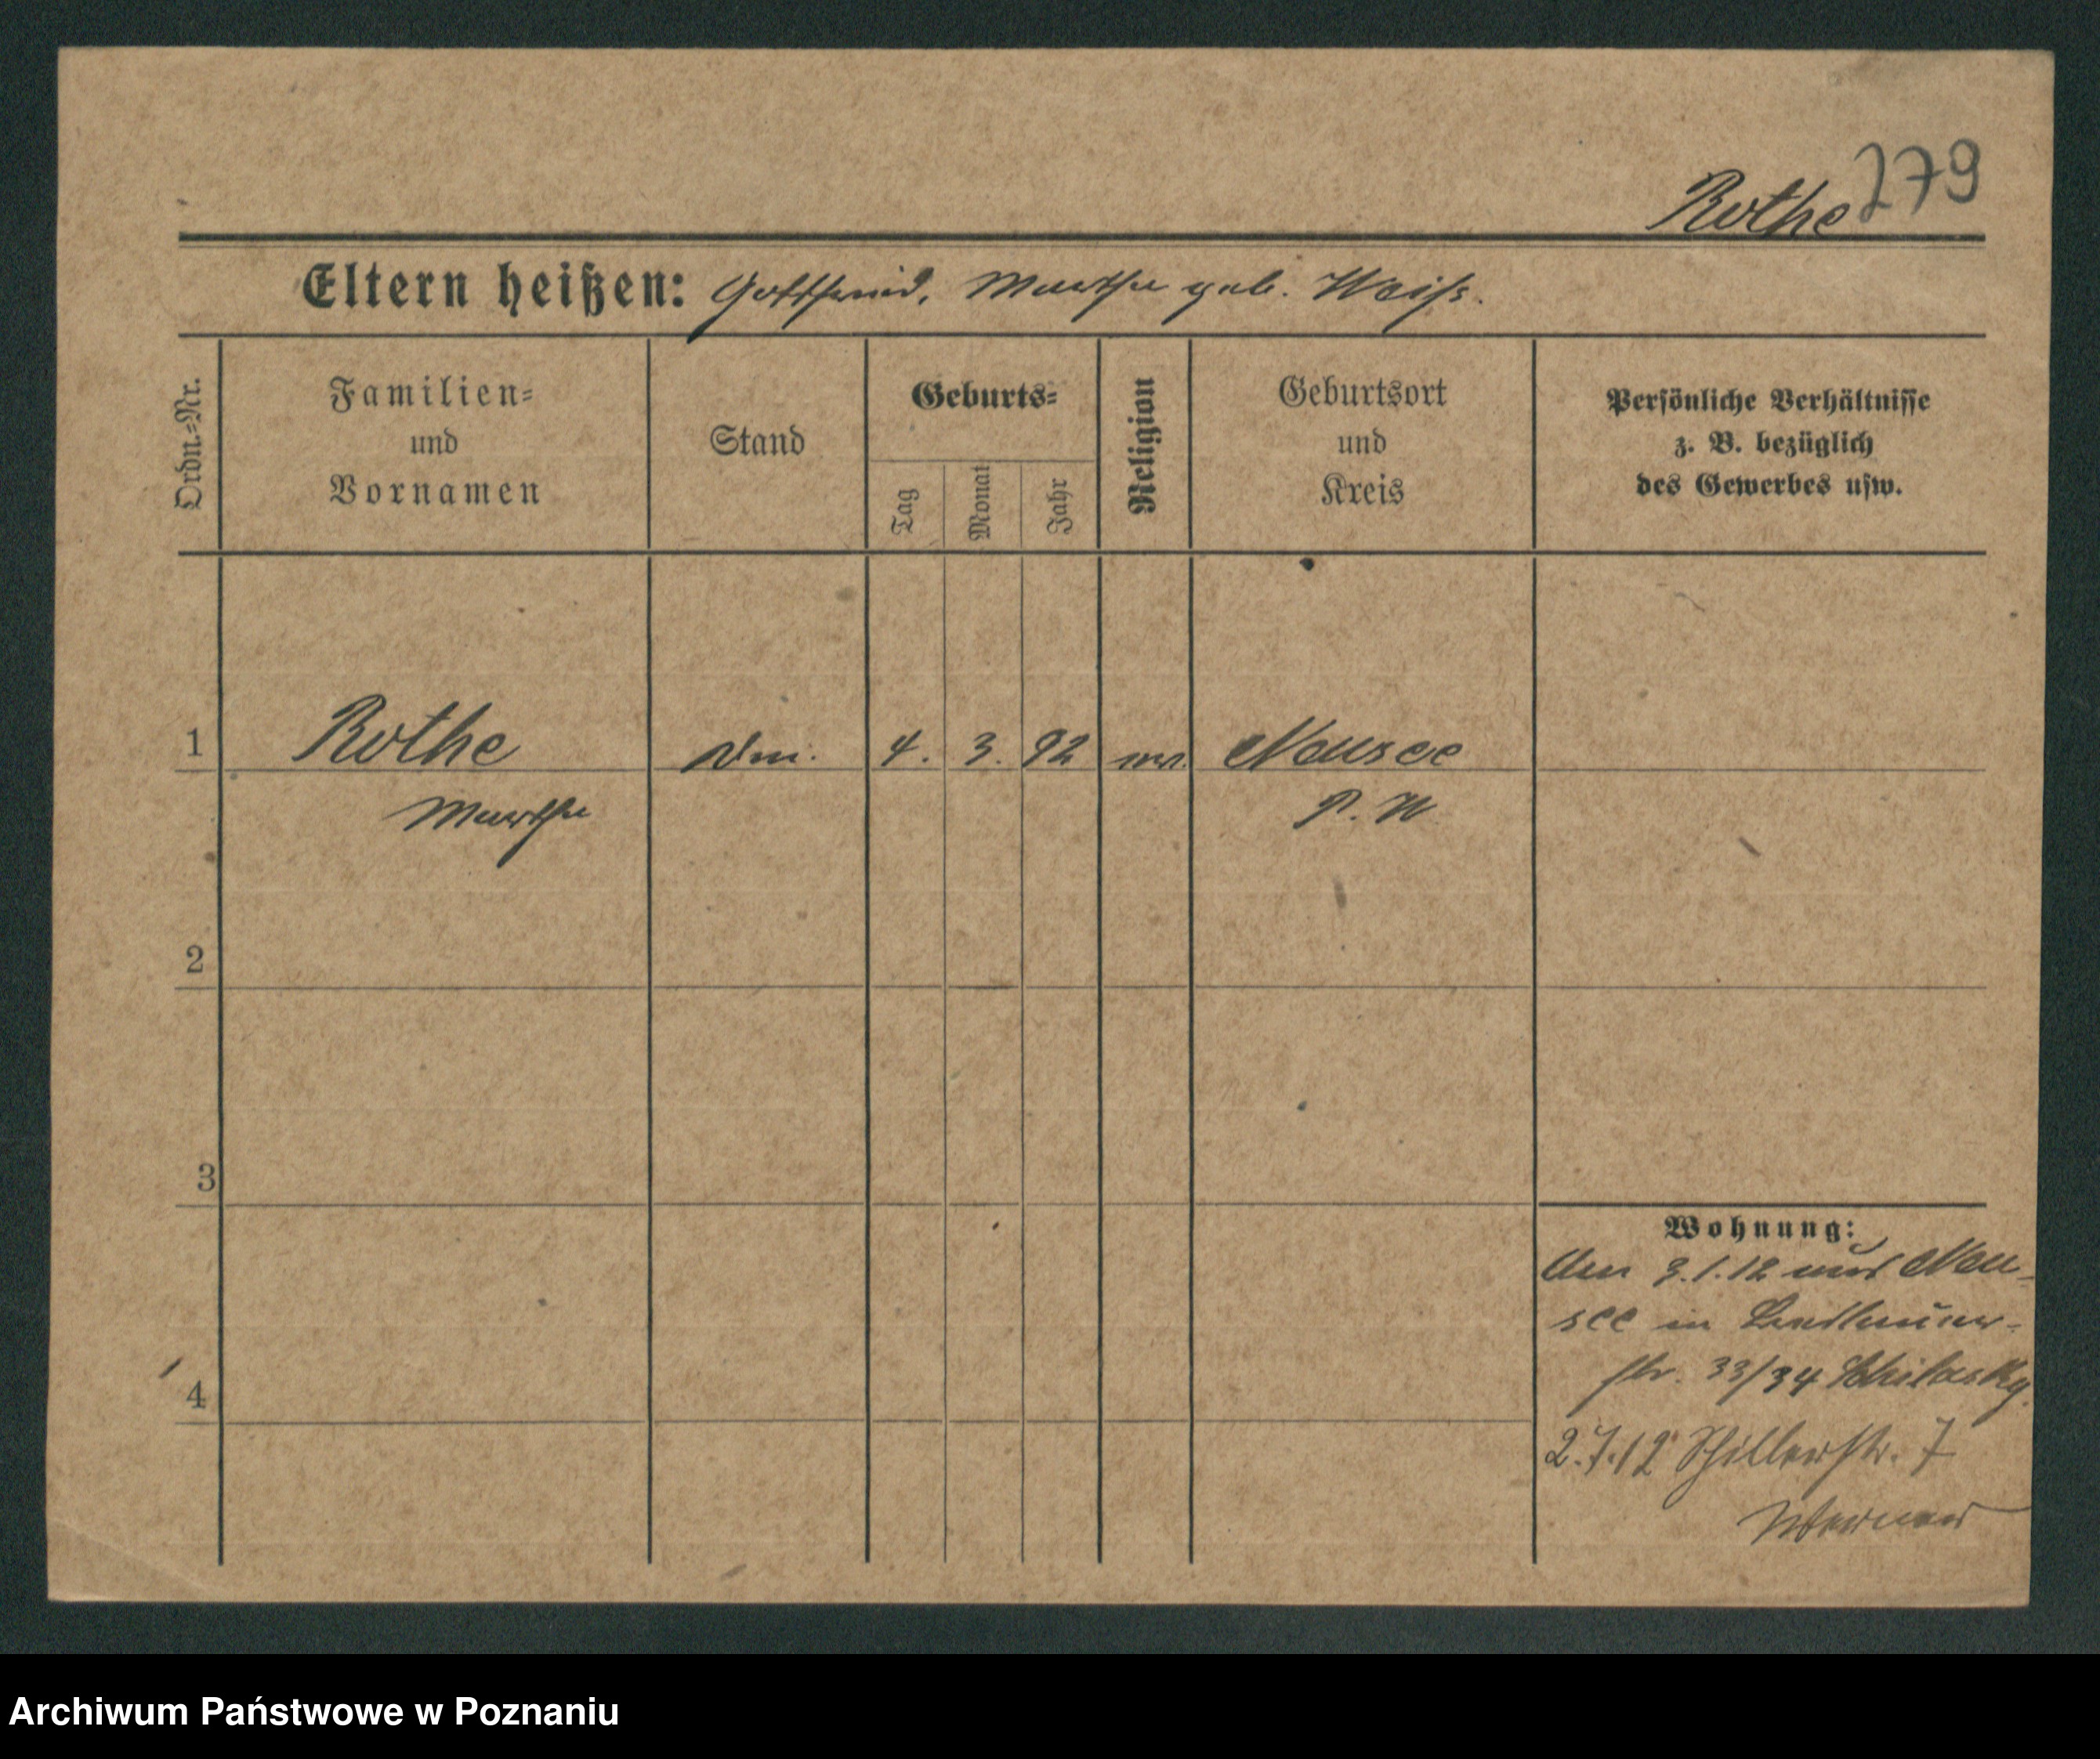 279
Rothe
Eltern heißen: Gottfried, Martha geb. Weiss.
Ordn.=Nr.
Familien=
und
Vornamen
Stand
Geburts=
Tag
Monat
Jahr
Religion
Geburtsort
und
Kreis
Persönliche Verhältnisse
z. B. bezüglich
des Gewerbes usw.
1 Rothe 4. 3. 92 Neusee
Martha P. W
2
3
4
Wohnung:
Am 3.1.12 aus Neu-
see in
str. 33/34
2.7.12 Schillerstr. 7
Werner
Archiwum Państwowe w Poznaniu